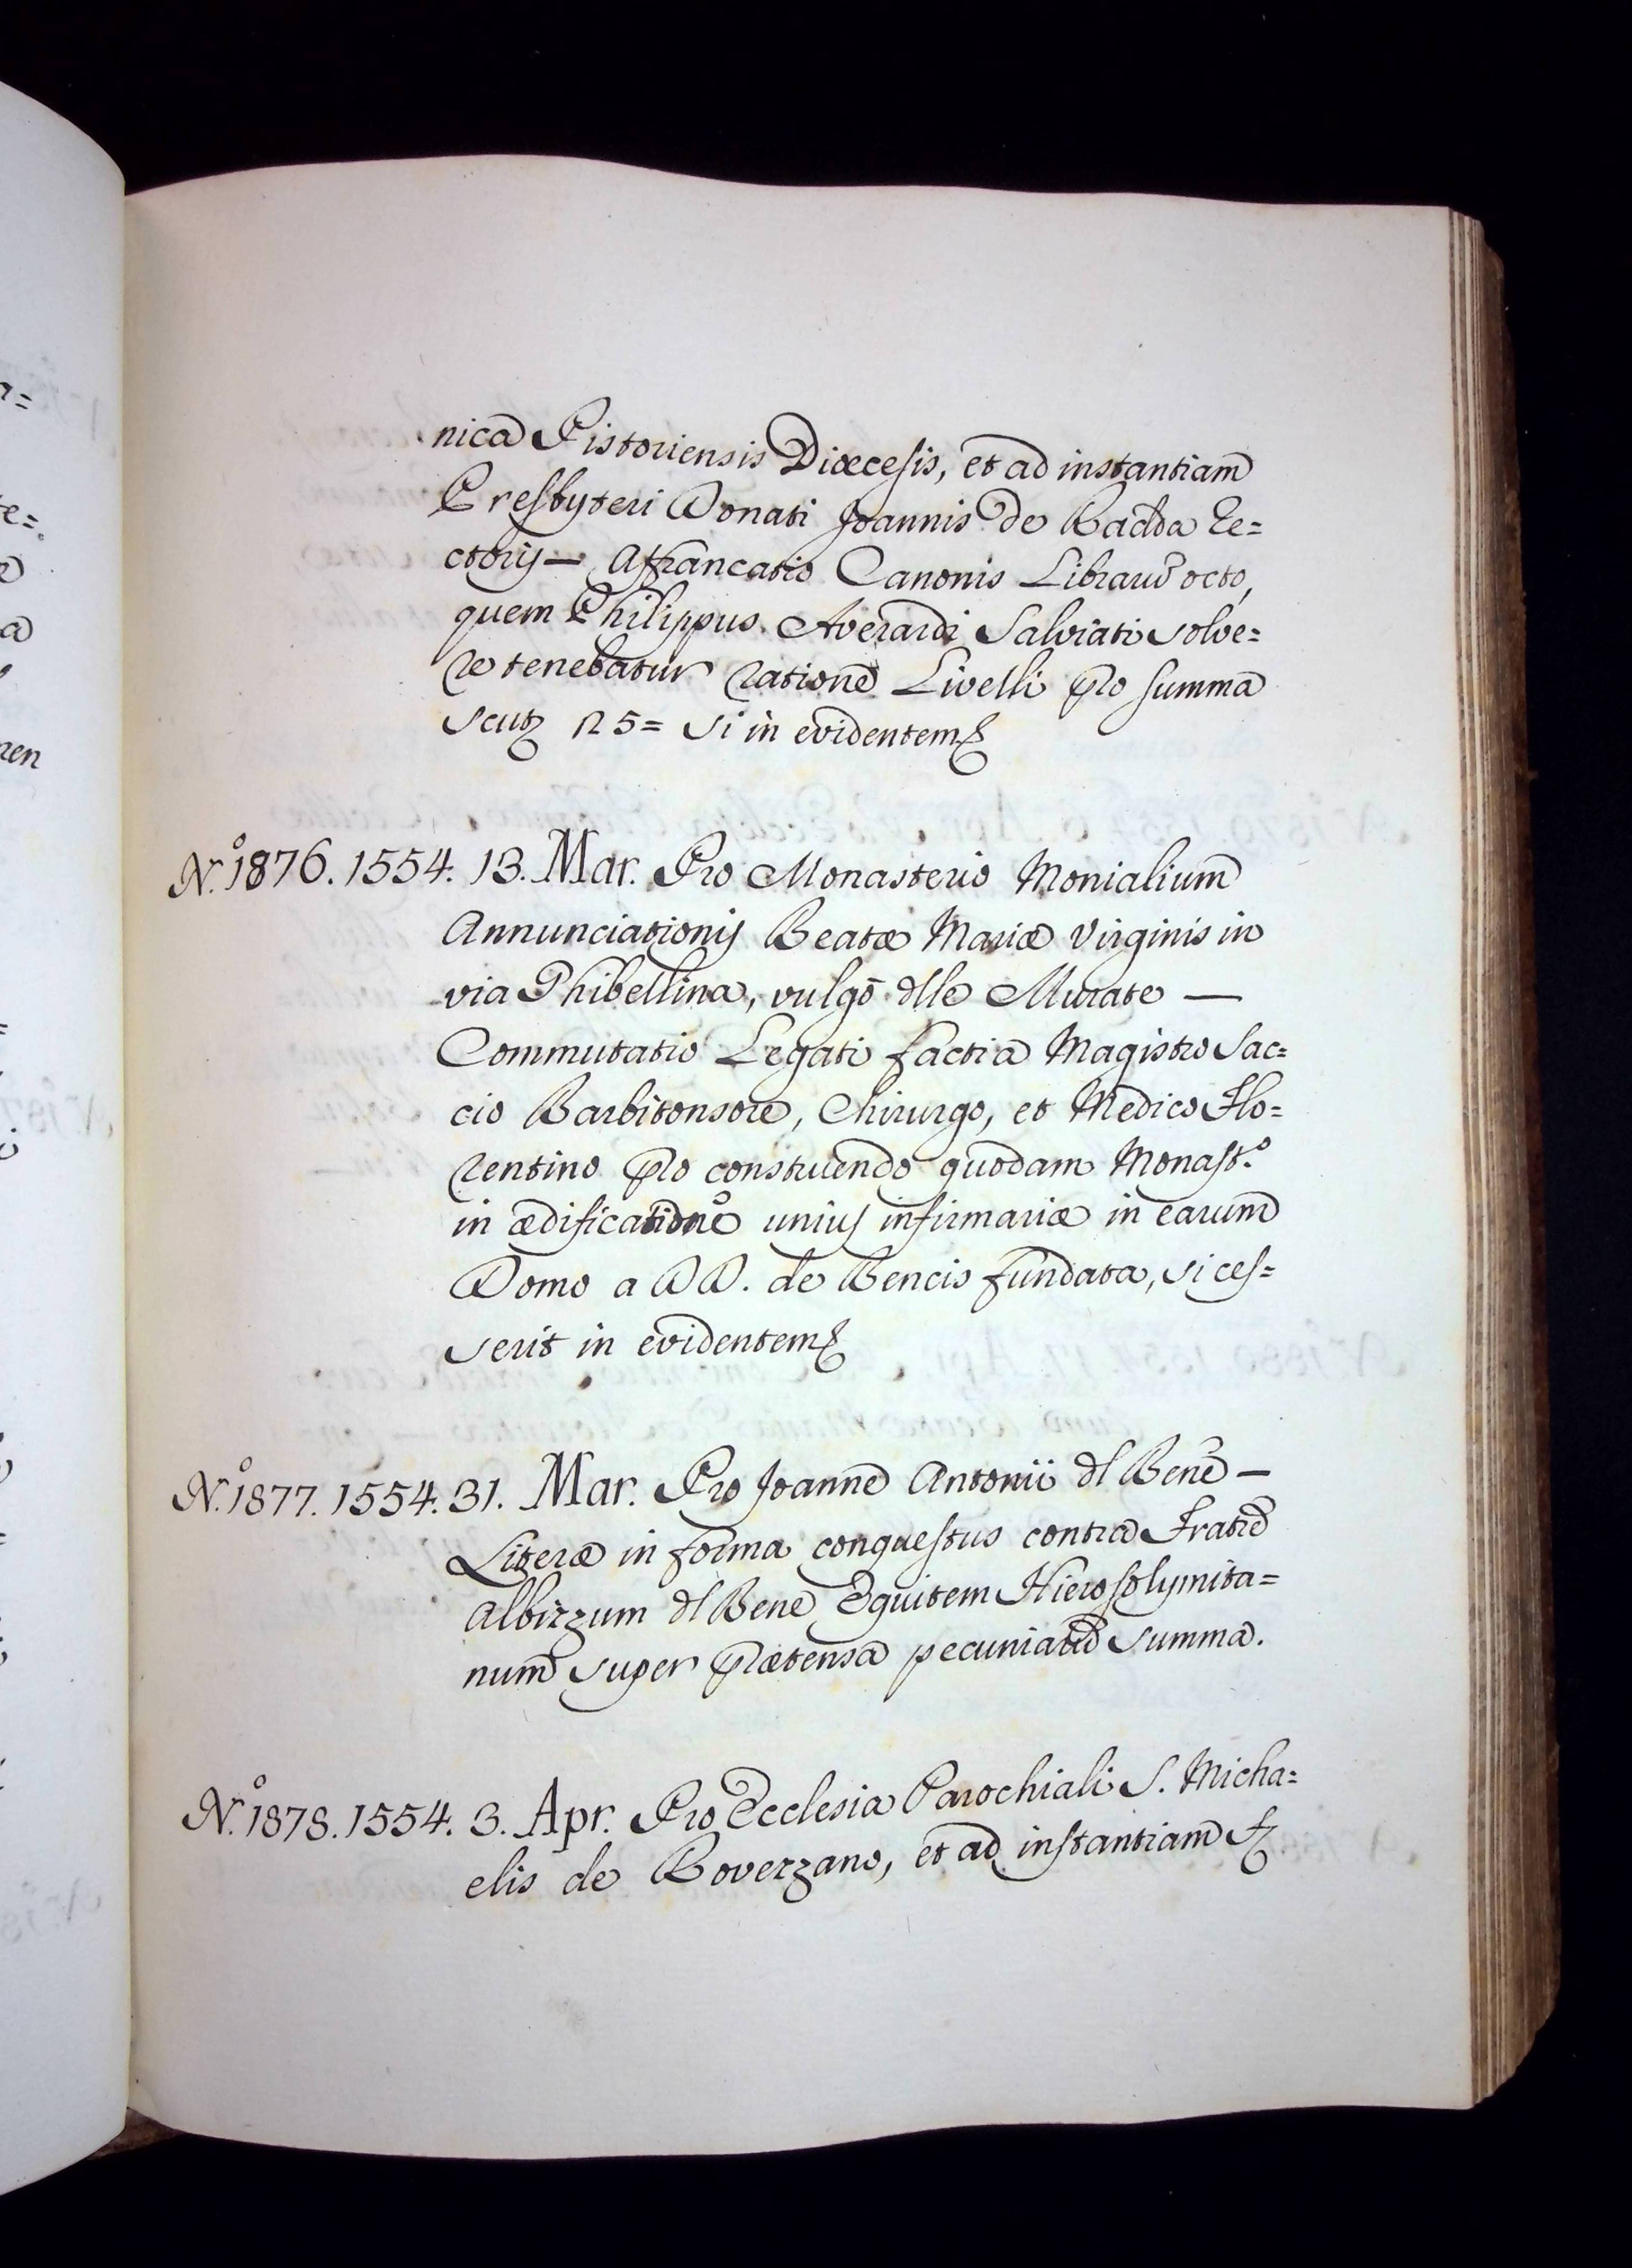 nica Pistoriensis Diœcesis, et ad instantiam
Presbyteri Donati Joannis de Radda Re=
ctoris — Afrancatio Canonis Librarū octo,
quem Philippus Averardi Salviati solve=
re tenebatur ratione Livelli pro summa
Scut 125= Si in evidentem
N.º 1876. 1554. 13. Mar. Pro Monasterio Monialium
Annunciationis Beatæ Mariæ Virginis in
via Ghibellina, vulgò dlle Murate —
Commutatio Legati facti a Magistro Sac=
cio Barbitonsore, Chirurgo, et Medico Flo=
rentino pro construendo quodam Monast.º
in ædificatione unius infirmariæ in earum
Domo a DD. de Bencis fundata, si ces=
serit in evidentem
N.º 1877. 1554. 31. Mar. Pro Joanne Antonii dl Bene —
Literæ in forma conquestus contra Fratrē
Albizzum dl Bene Equitem Hierosolymita=
num super prætensa pecuniarū summa.
N.º 1878. 1554. 3. Apr. Pro Ecclesia Parochiali S. Micha=
elis de Roverzano, et ad instantiam